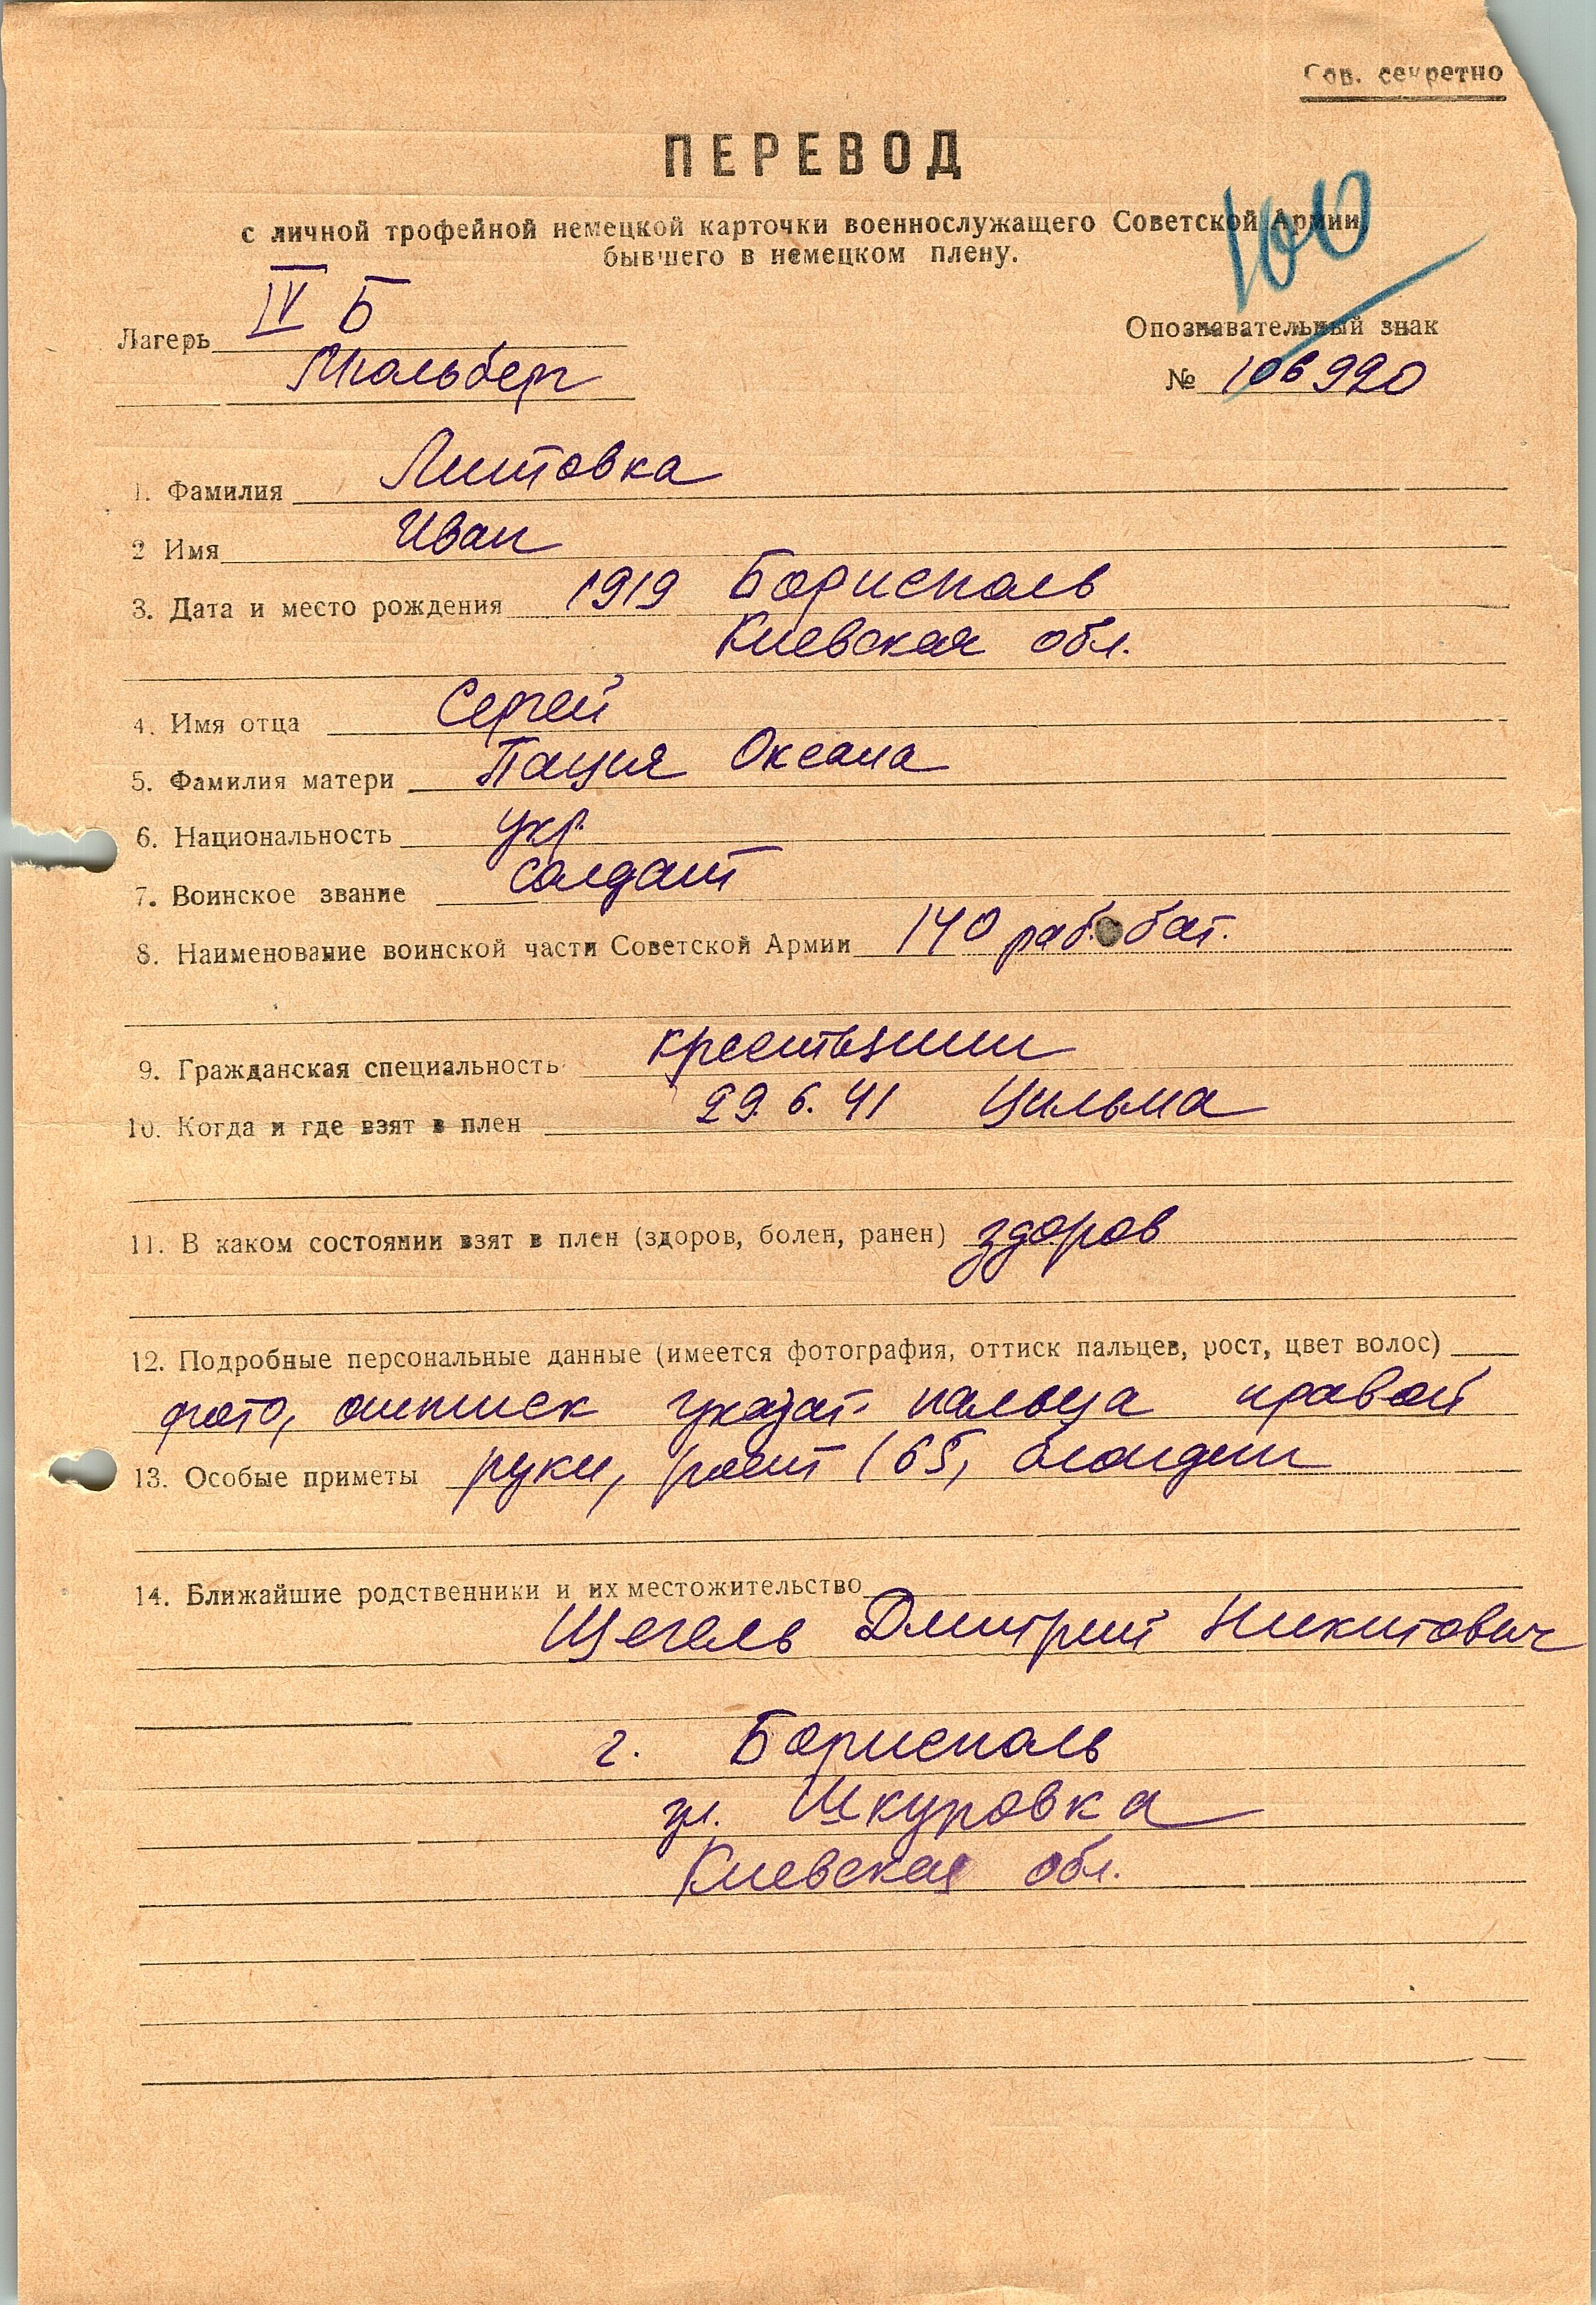 Сов. секретно
ПЕРЕВОД
с личной трофейной немецкой карточки военнослужащего Советской Армии,
бывшего в немецком плену.
100
Лагерь IV Б
Мюльберг
Опознавательный знак
№ 106990
1. Фамилия Литовка
2 Имя Иван
3. Дата и место рождения 1919 Борисполь
Киевская обл.
4. Имя отца Сергей
5. Фамилия матери Пация Оксана
6. Национальность укр.
7. Воинское звание солдат
8. Наименование воинской части Советской Армии 140 раб. бат.
9. Гражданская специальность крестьянин
10. Когда и где взят в плен 29.6.41 Цильма
11. В каком состоянии взят в плен (здоров, болен, ранен) здоров
12. Подробные персональные данные (имеется фотография, оттиск пальцев, рост, цвет волос)
фото, оттиск указат. пальца правой
13. Особые приметы руки, рост 165, блондин
14. Ближайшие родственники и их местожительство
Щегель Дмитрий Никитович
г. Борисполь
ул. Шкуровка
Киевская обл.